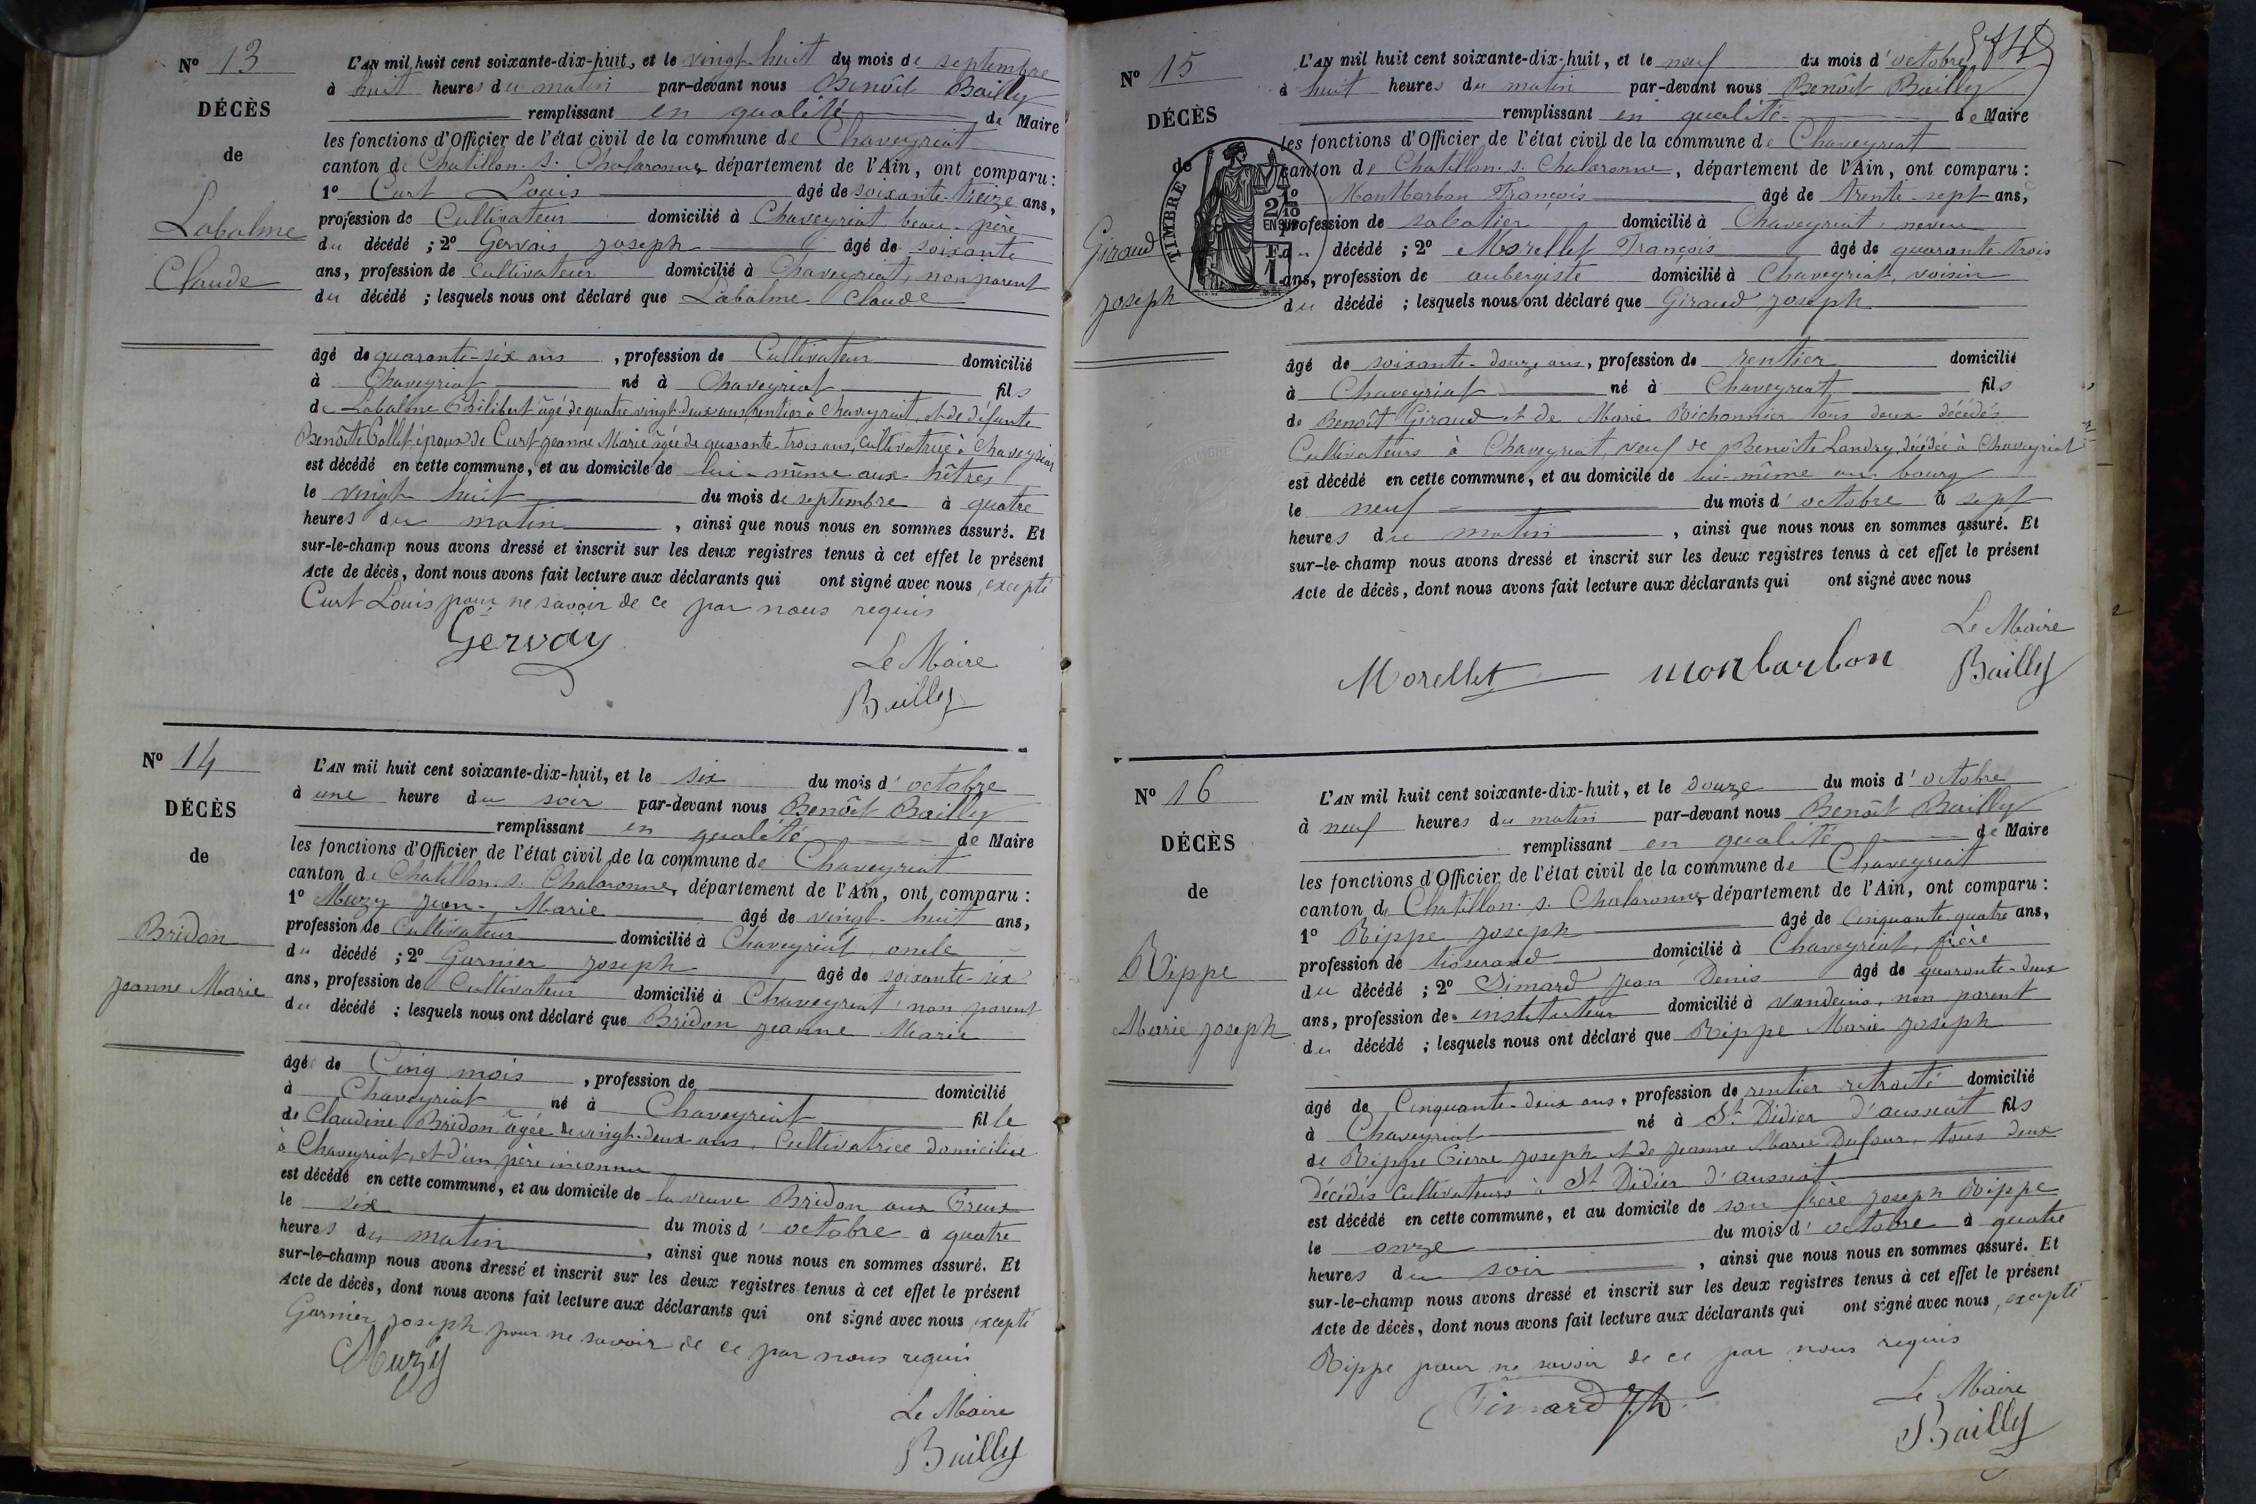 Nº 13
DÉCÈS
de
Labalme
Claude
L'AN mil huit cent soixante-dix-huit, et le vingt-huit du mois de septembre
à huit heures du matin par-devant nous Benoît Bailly
remplissant en qualité de Maire
les fonctions d'Officier de l'état civil de la commune de Chaveyriat
canton de Chatillon. s. Chalaronne, département de l'Ain, ont comparu :
1º Curt Louis âgé de soixante-treize ans,
profession de Cultivateur domicilié à Chaveyriat beau-père
du décédé ; 2º Gervais Joseph âgé de soixante
ans, profession de Cultivateur domicilié à Chaveyriat, non parent
du décédé ; lesquels nous ont déclaré que Labalme Claude
âgé de quarante-six ans, profession de Cultivateur domicilié
à Chaveyriat né à Chaveyriat fils
de Labalme Philibert âgé de quatre vingt-deux ans, rentier à Chaveyriat, et de défunte
Benoîte Collet époux de Curt Jeanne Marie âgée de quarante-trois ans, cultivatrice à Chaveyriat
est décédé en cette commune, et au domicile de lui-même aux hêtres
le vingt-huit du mois de septembre à quatre
heures du matin, ainsi que nous nous en sommes assuré. Et
sur-le-champ nous avons dressé et inscrit sur les deux registres tenus à cet effet le présent
Acte de décès, dont nous avons fait lecture aux déclarants qui ont signé avec nous, excepté
Curt Louis pour ne savoir de ce par nous requis
Gervay
Le Maire
Bailly
Nº 14
DÉCÈS
de
Bridon
Jeanne Marie
L'AN mil huit cent soixante-dix-huit, et le six du mois d'octobre
à une heure du soir par-devant nous Benoît Bailly
remplissant en qualité de Maire
les fonctions d'Officier de l'état civil de la commune de Chaveyriat
canton de Chatillon. s. Chalaronne, département de l'Ain, ont comparu :
1º Muzy Jean-Marie âgé de vingt-huit ans,
profession de Cultivateur domicilié à Chaveyriat, oncle
du décédé ; 2º Garnier Joseph âgé de soixante-six
ans, profession de Cultivateur domicilié à Chaveyriat, non parent
du décédé ; lesquels nous ont déclaré que Bridon Jeanne Marie
âgé de Cinq mois, profession de domicilié
à Chaveyriat né à Chaveyriat fille
de Claudine Bridon âgée de vingt-deux ans, Cultivatrice domiciliée
à Chaveyriat, et d'un père inconnu
est décédé en cette commune, et au domicile de la veuve Bridon aux Creux
le six du mois d'octobre à quatre
heures du matin, ainsi que nous nous en sommes assuré. Et
sur-le-champ nous avons dressé et inscrit sur les deux registres tenus à cet effet le présent
Acte de décès, dont nous avons fait lecture aux déclarants qui ont signé avec nous, excepté
Garnier Joseph pour ne savoir de ce par nous requis
Muzy
Le Maire
Bailly
Nº 15
DÉCÈS
de
Giraud
Joseph
TIMBRE
2/10
EN SUS
1 F.
L'AN mil huit cent soixante-dix-huit, et le neuf du mois d'octobre
à huit heures du matin par-devant nous Benoît Bailly
remplissant en qualité de Maire
les fonctions d'Officier de l'état civil de la commune de Chaveyriat
canton de Chatillon. s. Chalaronne, département de l'Ain, ont comparu :
1º Montbarbon François âgé de trente-sept ans,
profession de sabotier domicilié à Chaveyriat, neveu
du décédé ; 2º Morellet François âgé de quarante-trois
ans, profession de aubergiste domicilié à Chaveyriat, voisin
du décédé ; lesquels nous ont déclaré que Giraud Joseph
âgé de soixante-douze ans, profession de rentier domicilié
à Chaveyriat né à Chaveyriat fils
de Benoît Giraud et de Marie Bichonnier tous deux décédés
Cultivateurs à Chaveyriat, veuf de Benoîte Landry, décédée à Chaveyriat
est décédé en cette commune, et au domicile de lui-même au bourg
le neuf du mois d'octobre à sept
heures du matin, ainsi que nous nous en sommes assuré. Et
sur-le-champ nous avons dressé et inscrit sur les deux registres tenus à cet effet le présent
Acte de décès, dont nous avons fait lecture aux déclarants qui ont signé avec nous
Morellet
monbarbon
Le Maire
Bailly
Nº 16
DÉCÈS
de
Rippe
Marie Joseph
L'AN mil huit cent soixante-dix-huit, et le douze du mois d'octobre
à neuf heures du matin par-devant nous Benoît Bailly
remplissant en qualité de Maire
les fonctions d'Officier de l'état civil de la commune de Chaveyriat
canton de Chatillon. s. Chalaronne, département de l'Ain, ont comparu :
1º Rippe Joseph âgé de Cinquante-quatre ans,
profession de tisserand domicilié à Chaveyriat, frère
du décédé ; 2º Simard Jean Denis âgé de quarante-deux
ans, profession de instituteur domicilié à Vandeins, non parent
du décédé ; lesquels nous ont déclaré que Rippe Marie Joseph
âgé de Cinquante-deux ans, profession de rentier retraité domicilié
à Chaveyriat né à St Didier d'aussiat fils
de Rippe Pierre Joseph et de Jeanne Marie Dufour, tous deux
décédés Cultivateurs à St Didier d'aussiat
est décédé en cette commune, et au domicile de son frère Joseph Rippe
le onze du mois d'octobre à quatre
heures du soir, ainsi que nous nous en sommes assuré. Et
sur-le-champ nous avons dressé et inscrit sur les deux registres tenus à cet effet le présent
Acte de décès, dont nous avons fait lecture aux déclarants qui ont signé avec nous, excepté
Rippe pour ne savoir de ce par nous requis
Le Maire
Bailly